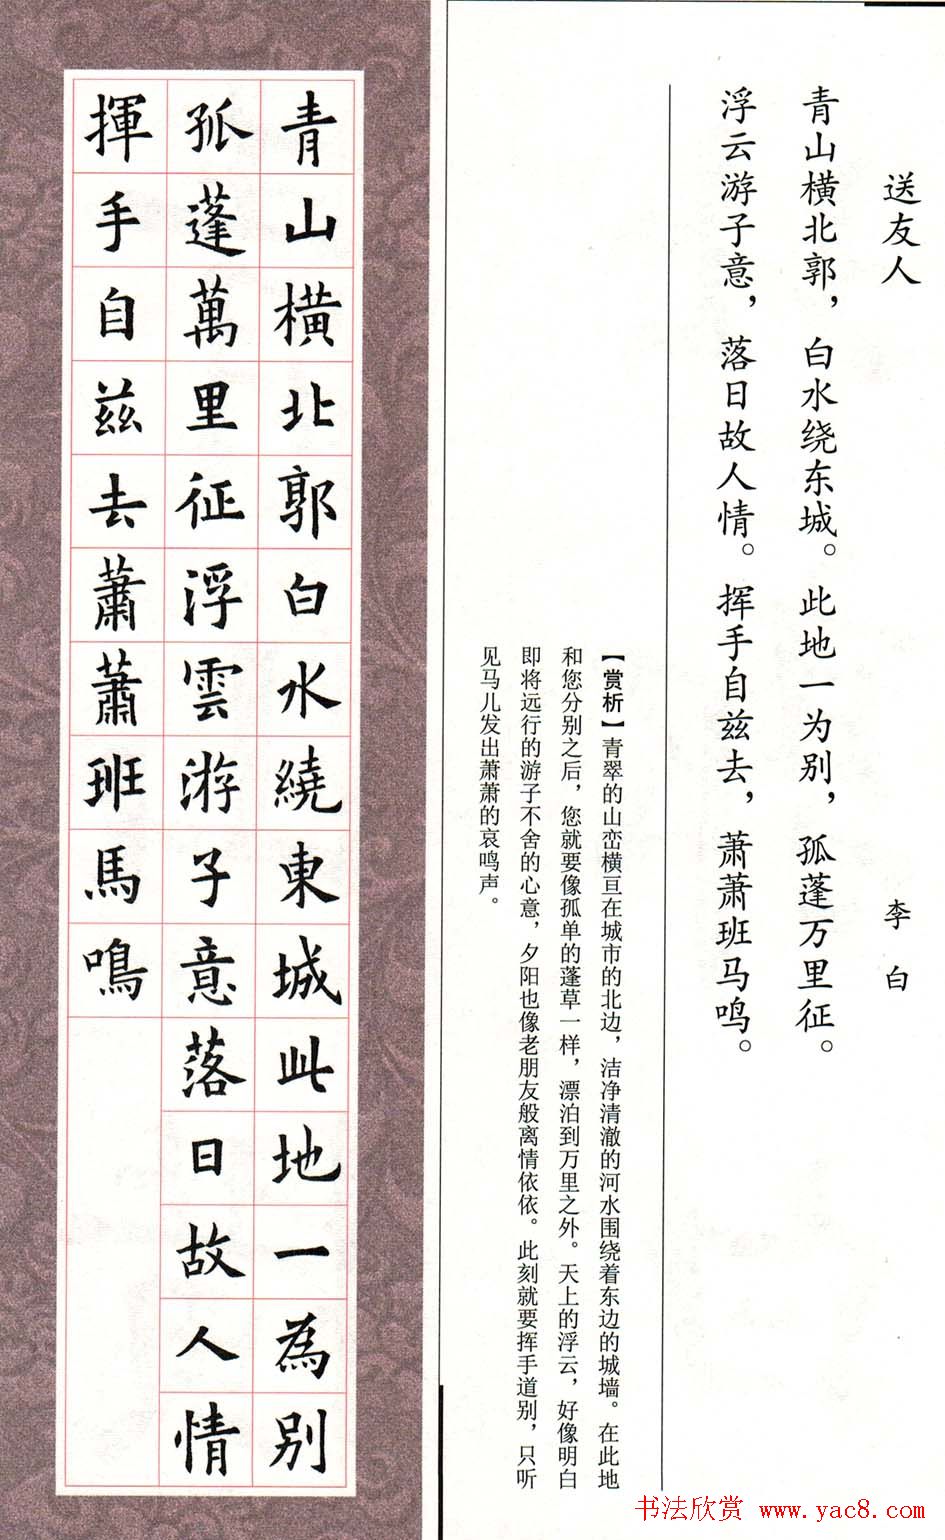 送友人
李白
青山横北郭，白水绕东城。此地一为别，孤蓬万里征。
浮云游子意，落日故人情。挥手自兹去，萧萧班马鸣。
【赏析】青翠的山峦横亘在城市的北边，洁净清澈的河水围绕着东边的城墙。在此地
和您分别之后，您就要像孤单的蓬草一样，漂泊到万里之外。天上的浮云，好像明白
即将远行的游子不舍的心意，夕阳也像老朋友般离情依依。此刻就要挥手道别，只听
见马儿发出萧萧的哀鸣声。
青山橫北郭白水繞東城此地一為別
孤蓬萬里征浮雲游子意落日故人情
揮手自茲去蕭蕭班馬鳴
书法欣赏 www.yac8.com